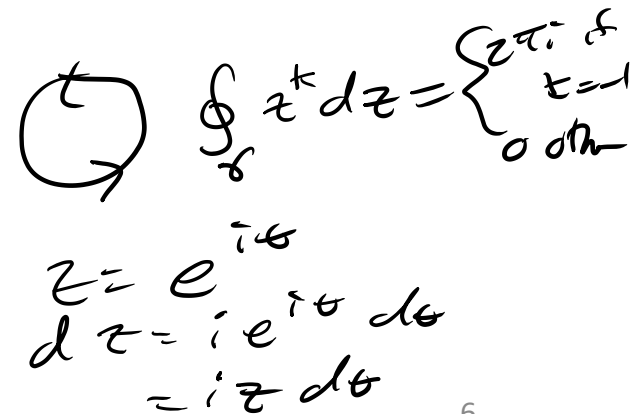 ∮_γ z^k dz = { 2πi if
k=-1
0 oth
z = e^{iθ}
dz = i e^{iθ} dθ
= i z dθ
6